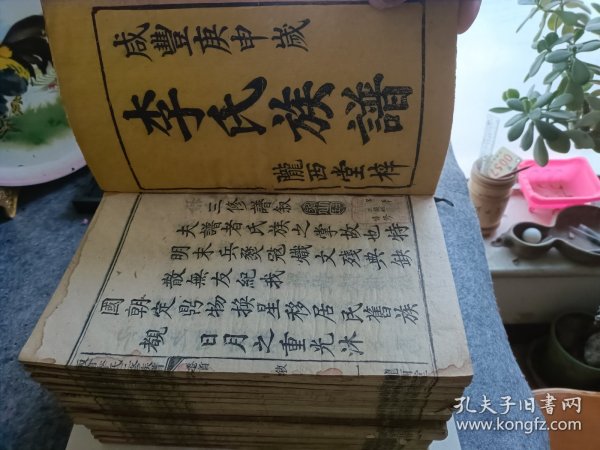 咸豐庚申歲
李氏族譜
隴西堂梓
三修譜敘
夫譜者氏族之掌故也特
明末兵燹寇熾文殘典缺
散無友紀我
國朝定鼎物換星移居民舊族
覩日月之重光沐
卷首
一
孔夫子旧书网
www.kongfz.com